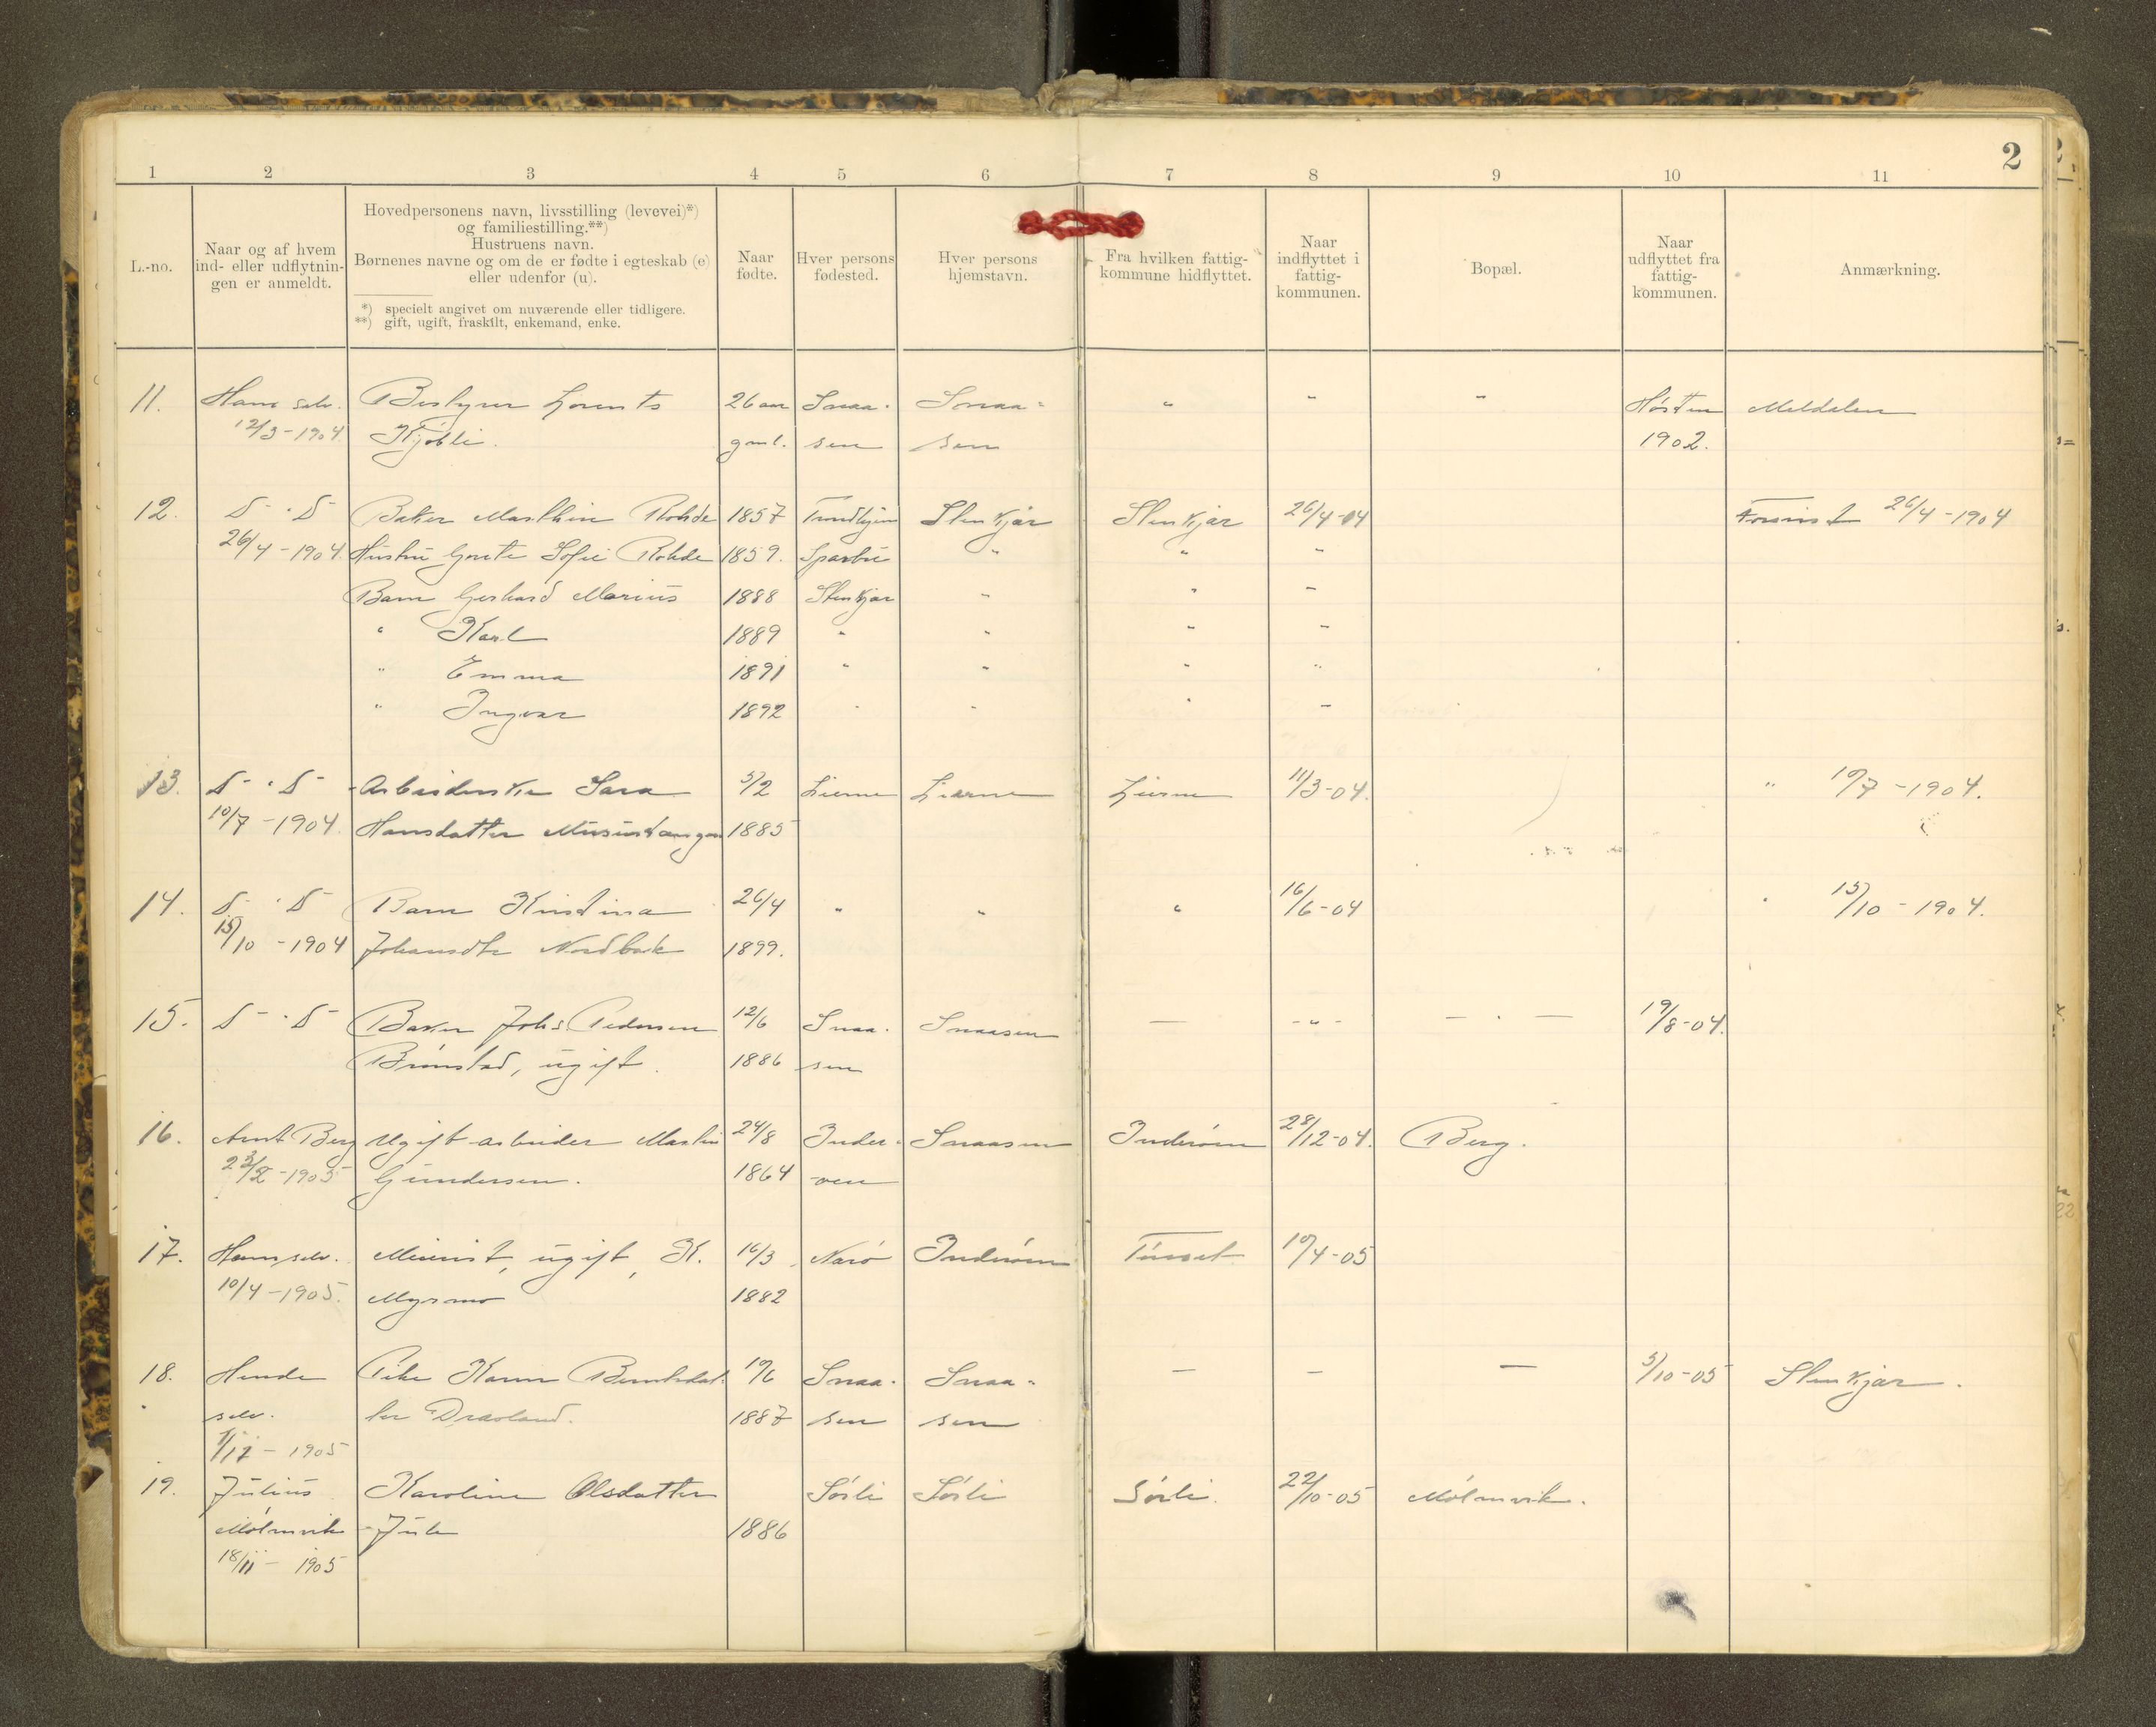 2
1 2 3 4 5 6 7 8 9 10 11
L.-no.
Naar og af hvem
ind- eller udflytnin-
gen er anmeldt.
Hovedpersonens navn, livsstilling (levevei)*)
og familiestilling.**)
Hustruens navn.
Børnenes navne og om de er fødte i egteskab (e)
eller udenfor (u).
*) specielt angivet om nuværende eller tidligere.
**) gift, ugift, fraskilt, enkemand, enke.
Naar
fødte.
Hver persons
fødested.
Hver persons
hjemstavn.
Fra hvilken fattig-
kommune hidflyttet.
Naar
indflyttet i
fattig-
kommunen.
Bopæl.
Naar
udflyttet fra
fattig-
kommunen.
Anmærkning.
11. Ham selv. Bestyrer Lorents 26 aar Snaa- Snaa- " " " Høsten Meldalen
12/3-1904 Kjøbli. gml. sen sen 1902.
12. D- . D- Baker Marthin Rohde 1857 Trondhjem Stenkjær Stenkjær 26/4-04 26/4-1904
26/4-1904. Hustru Grete Sofie Rohde 1859. Sparbu " " "
Barn Gerhard Marius 1888 Stenkjær " " "
" Karl 1889 " " " "
" Emma 1891 " " " "
" Ingvar 1892 " " " "
13. D- . D- Arbeiderske Sara 5/2 Lierne Lierne Lierne 11/3-04. " 10/7-1904.
10/7-1904. Hansdatter 1885
14. D- . D- Barn Kristina 26/4 " " " 16/6-04 " 15/10-1904.
15/10-1904 Johansdtr Nordbæk 1899.
15. D- . D- Baker Johs Pedersen 12/6 Snaa- Snaasen — - " - — . — 19/8-04.
Brønstad, ugift. 1886 sen
16. Arnt Berg Ugift arbeider Martin 24/8 Inder- Snaasen Inderøen 28/12-04. Berg.
-1905 Gundersen. 1864 øen
17. Ham selv. ugift, K. 16/3 Nærø Inderøen 10/4-05
10/4-1905. Myrmo 1882
18. Hende Pike Karen Berntsdat- 10/6 Snaa- Snaa- — — — 5/10-05 Stenkjær.
selv. ter 1887 sen sen
-1905
19. Julius Karoline Olsdatter Sörli Sörli Sörli. 22/10-05 Mölnvik.
Mölnvik Jule 1886
18/11-1905